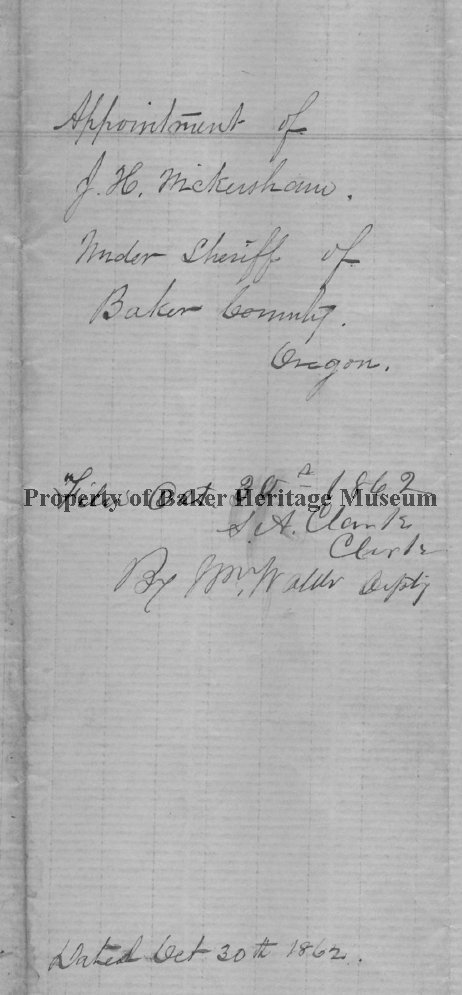 Appointment of
J. H. Wickersham.
Under Sheriff of
Baker County.
Oregon.
Filed Oct 1862
Property of Baker Heritage Museum
S. A. Clarke
Clerk
By Wm. Waldo Depty
Dated Oct 30th 1862.